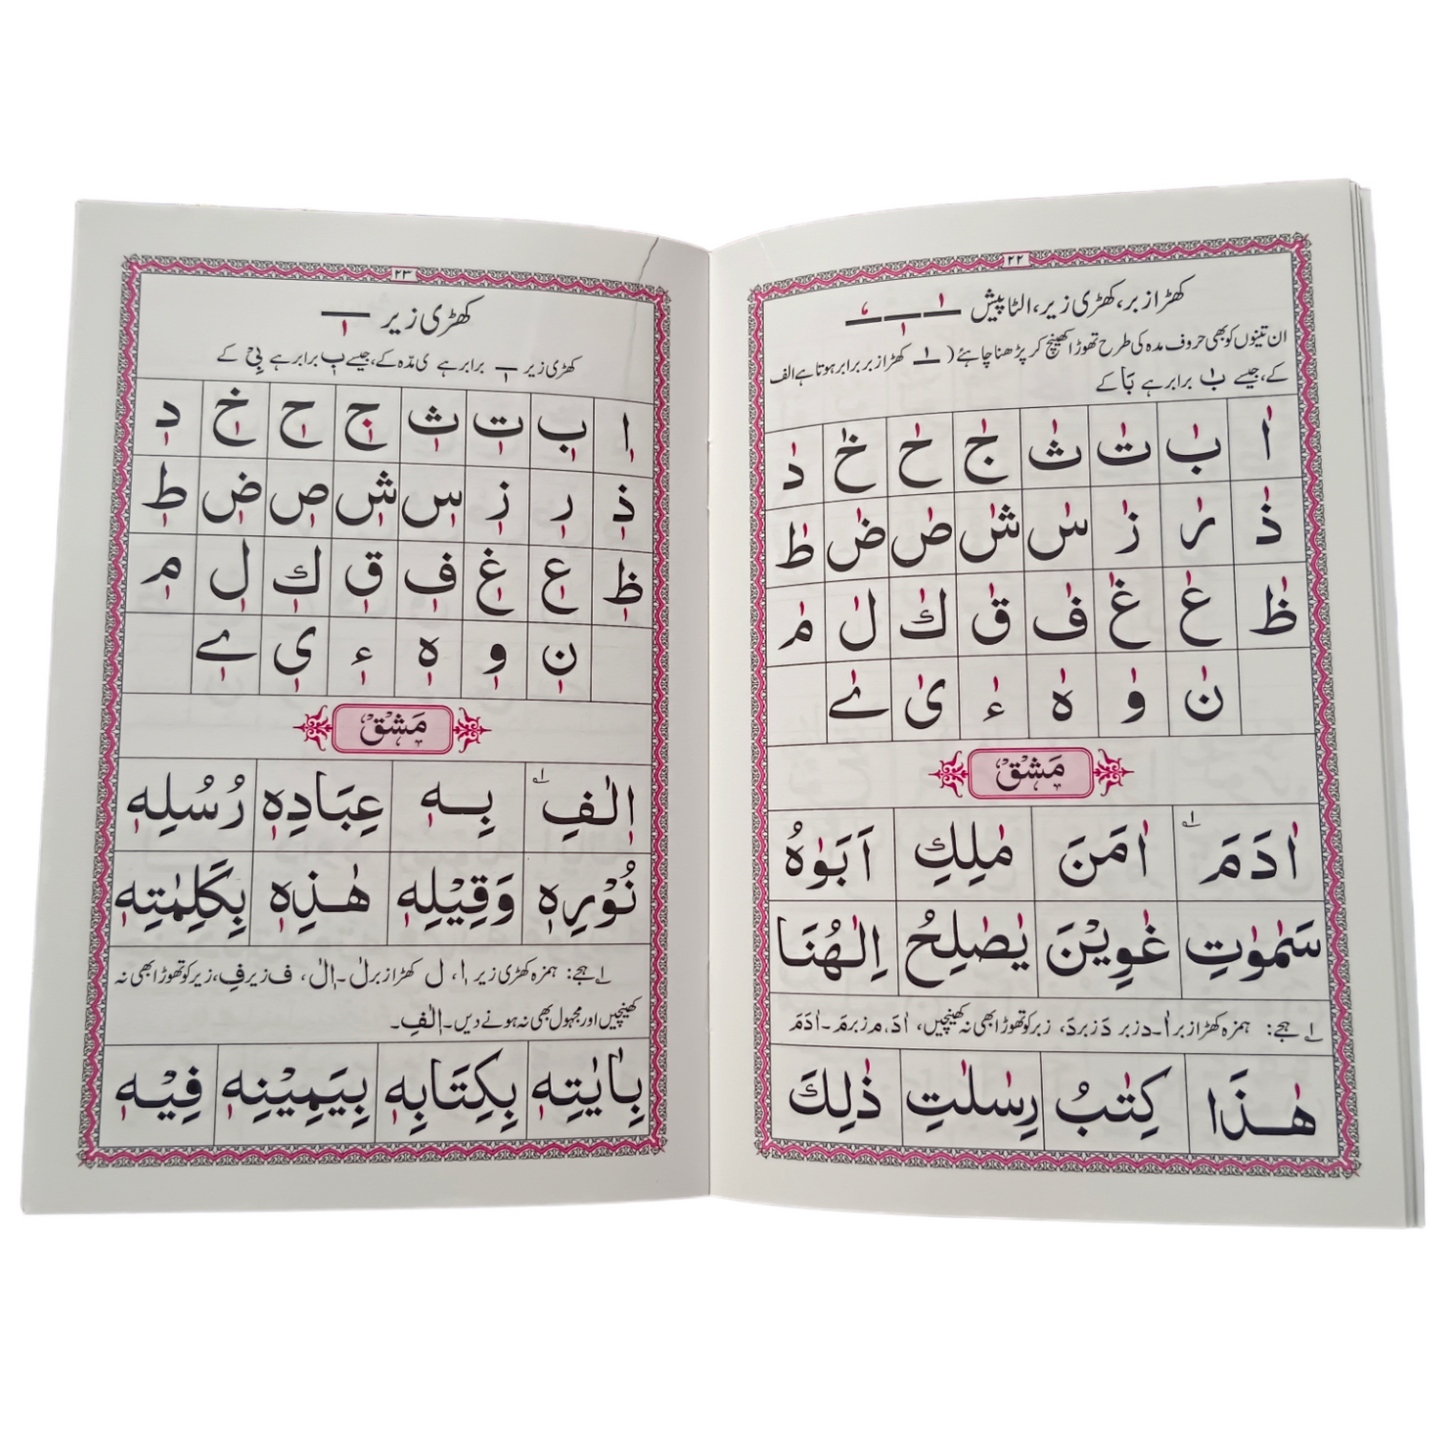 ۲۲
کھڑا زبر، کھڑی زیر، الٹا پیش ◌ٰ ◌ٖ ◌ٗ
ان تینوں کو بھی حروف مدہ کی طرح تھوڑا کھینچ کر پڑھنا چاہئے ( ◌ٰ کھڑا زبر برابر ہوتا ہے الف
کے، جیسے بٰ برابر ہے بَا کے
اٰ بٰ تٰ ثٰ جٰ حٰ خٰ دٰ
ذٰ رٰ زٰ سٰ شٰ صٰ ضٰ طٰ
ظٰ عٰ غٰ فٰ قٰ كٰ لٰ مٰ
نٰ وٰ هٰ ءٰ یٰ ےٰ
مَشْقْ
اٰدَمَ ۱ اٰمَنَ مٰلِكِ اَبَوٰهُ
سَمٰوٰتِ غٰوِيْنَ يٰصٰلِحُ اِلٰهُنَا
۱ ہجے: ہمزہ کھڑا زبر اٰ۔ د زبر دَ زبر دَ، زبر کو تھوڑا بھی نہ کھینچیں، اٰدَ، م زبر مَ۔ اٰدَمَ
هٰذَا كِتٰبُ رِسٰلٰتِ ذٰلِكَ
۲۳
کھڑی زیر ◌ٖ
کھڑی زیر ◌ٖ برابر ہے ی مدّہ کے، جیسے بٖ برابر ہے بِیْ کے
اٖ بٖ تٖ ثٖ جٖ حٖ خٖ دٖ
ذٖ رٖ زٖ سٖ شٖ صٖ ضٖ طٖ
ظٖ عٖ غٖ فٖ قٖ كٖ لٖ مٖ
نٖ وٖ هٖ ءٖ یٖ ےٖ
مَشْقْ
اٖلٰفِ ۱ بِهٖ عِبَادِهٖ رُسُلِهٖ
نُوْرِهٖ وَقِيْلِهٖ هٰذِهٖ بِكَلِمٰتِهٖ
۱ ہجے: ہمزہ کھڑی زیر اٖ، ل کھڑا زبر لٰ۔ اٖلٰ، ف زیر فِ، زیر کو تھوڑا بھی نہ
کھینچیں اور مجہول بھی نہ ہونے دیں۔ اٖلٰفِ۔
بِاٰيٰتِهٖ بِكِتَابِهٖ بِيَمِيْنِهٖ فِيْهٖ